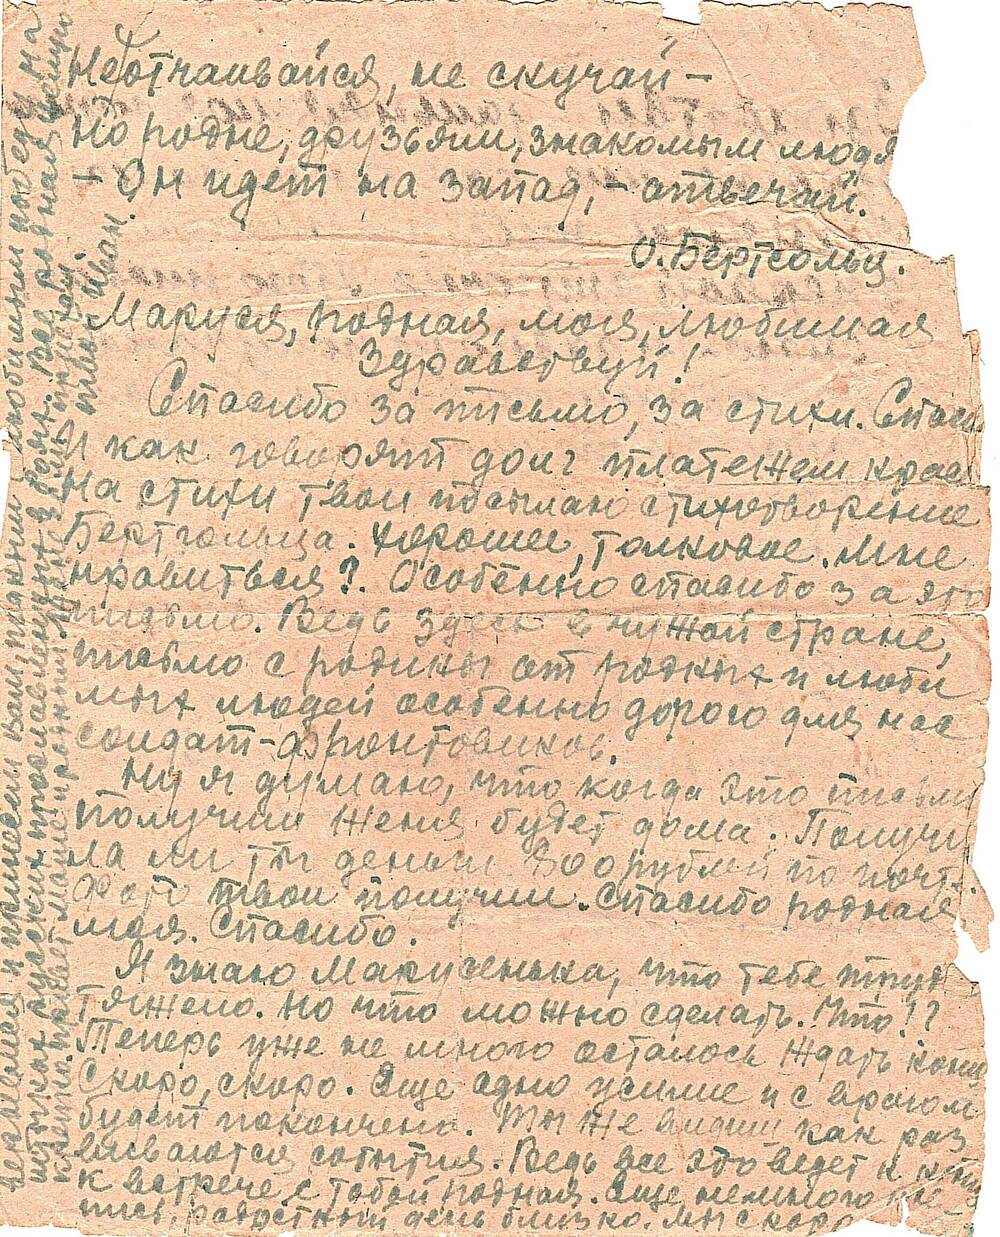 Неотчаивайся, не скучай –
Но родне, друзьям, знакомым людя
– Он идет на запад, – отвечай.
О. Бергсольц.
Маруся, родная, моя, любимая
Здравствуй!
Спасибо за письмо, за стихи. Спаси
И как говорят долг платежем крас
на стихи твои посылаю стихотворение
Берггольца. Хорошее, толковое. Мне
нравиться? Особенно спасибо за это
письмо. Ведь здесь в чужой стране,
письмо с родины от родных и люби
мых людей особенно дорого для нас
солдат-фронтовиков.
Ну я думаю, что когда это письмо
получиш Женя будет дома. Получи
ла ли ты деньги 800 рублей по почт.
Фото твои получил. Спасибо родная
моя. Спасибо.
Я знаю Марусенька, что тебе труд
тяжело. Но что можно сделать. Что!?
Теперь уже не много осталось ждать конц
Скоро, скоро. Еще одно усилие и с врагом
будет покончено. Ты же видиш как раз
виваются события. Ведь все это ведет к
к встрече с тобой родная. Еще немного
радостный день близко. Мы скоро
и принесем вам, нашим любимым победу на
русских прославленную
крепко. Привет маме и родным
твой Иван.